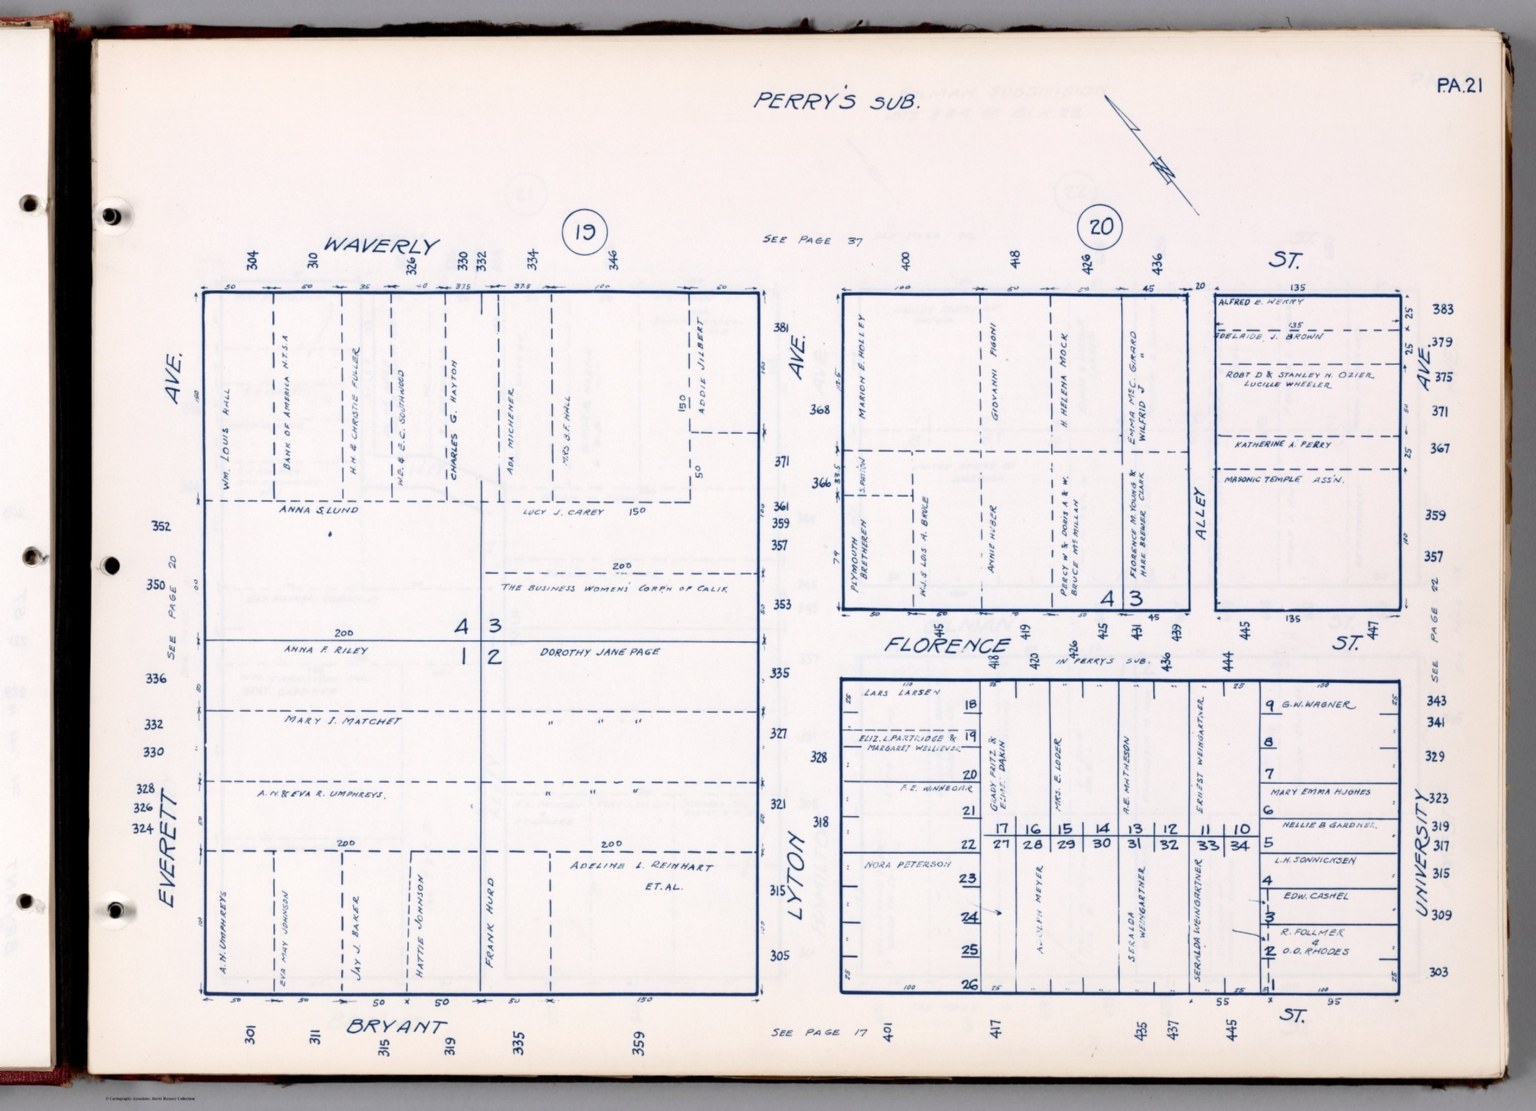 PA.21
PERRY'S SUB.
N
19
20
SEE PAGE 37
WAVERLY
ST.
304
310
326
330
332
334
346
400
418
426
436
50
50
35
40
37.5
37.5
100
50
100
50
50
45
20
135
AVE.
WM. LOUIS HALL
BANK OF AMERICA N.T.S.A
H.H. & CHRISTIE FULLER
W.E. & E.C. SOUTHWOOD
CHARLES G. HAYTON
ADA MICHENER
MRS S.F. HALL
150
ADDIE JILBERT
50
ANNA S. LUND
LUCY J. CAREY 150
200
THE BUSINESS WOMENS' CORP'N OF CALIF.
4 3
200
ANNA F. RILEY
1 2
DOROTHY JANE PAGE
MARY I. MATCHET
" " "
A.N. & EVA R. UMPHREYS.
" " "
200
200
A.N. UMPHREYS
EVA MAY JOHNSON
JAY J. BAKER
HATTIE JOHNSON
FRANK HURD
ADELINE L. REINHART
ET. AL.
50
50
50
50
150
352
350
SEE PAGE 20
336
332
330
328
326
324
EVERETT
BRYANT
301
311
315
319
335
359
AVE.
381
371
361
359
357
353
335
327
321
315
305
LYTON
368
366
328
318
MARION E. HOLLEY
S. PATTON
PLYMOUTH
BRETHEREN
W.J. & LOIS A. BRUCE
GIOVANNI FIGONI
ANNIE HUBER
H. HELENA MOCK
PERCY W & DORIS A & W.
BRUCE McMILLAN
EMMA McC. GIRARD
WILFRID J "
FLORENCE M. YOUNG &
HARE BREWER CLARK
4 3
33.5
79
45
ALLEY
ALFRED E. WERRY
135
ADELAIDE J. BROWN
ROBT D & STANLEY H. OZIER
LUCILLE WHEELER
KATHERINE A. PERRY
MASONIC TEMPLE ASS'N.
135
25
25
50
25
383
379
AVE.
375
371
367
359
357
SEE PAGE 22
FLORENCE
ST.
415
419
425
431
439
445
447
IN PERRYS SUB.
418
420
426
436
444
LARS LARSEN
18
ELIZ. L. PARTRIDGE & 19
20
21
22
NORA PETERSON
23
24
25
26
100
GRADY FRITZ &
DAKIN
MRS. E. LODER
A.E. MATHESON
ERNEST WEINGARTNER
17 16 15 14 13 12 11 10
27 28 29 30 31 32 33 34
MEYER
SERALDA
WEINGARTNER
SERALDA WEINGARTNER
100
9 G.W. WAGNER
8
7
MARY EMMA HUGHES
6
NELLIE B. GARDNER
5
L.H. SONNICKSEN
4
EDW. CASHEL
3
R. FOLLMER
&
2 O.O. RHODES
1
100
55
95
343
341
329
323
319
317
315
309
303
UNIVERSITY
ST.
SEE PAGE 17
401
417
435
437
445
© Cartography Associates, David Rumsey Collection